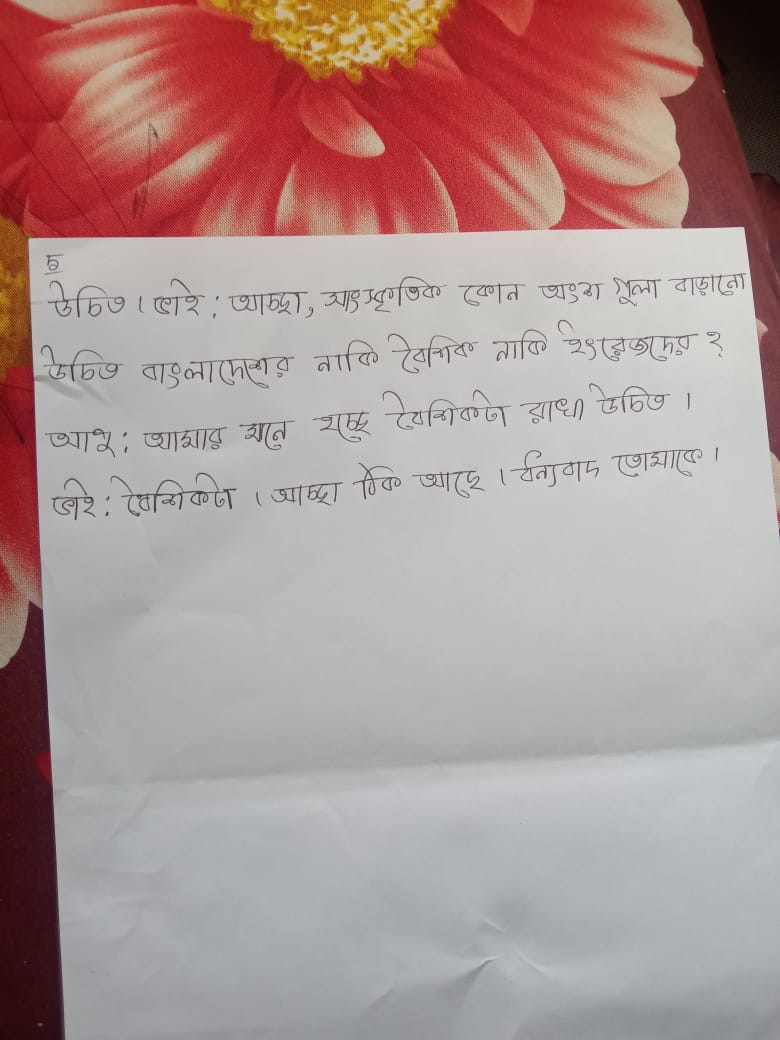 ৳
উচিত। ভাই: আচ্ছা, সাংস্কৃতিক কোন অংশ গুলা বাড়ানো
উচিত বাংলাদেশের নাকি বৈশিক নাকি ইংরেজদের?
আপু: আমার মনে হচ্ছে বৈশিকটা রাখা উচিত।
ভাই: বৈশিকটা। আচ্ছা ঠিক আছে। ধন্যবাদ তোমাকে।